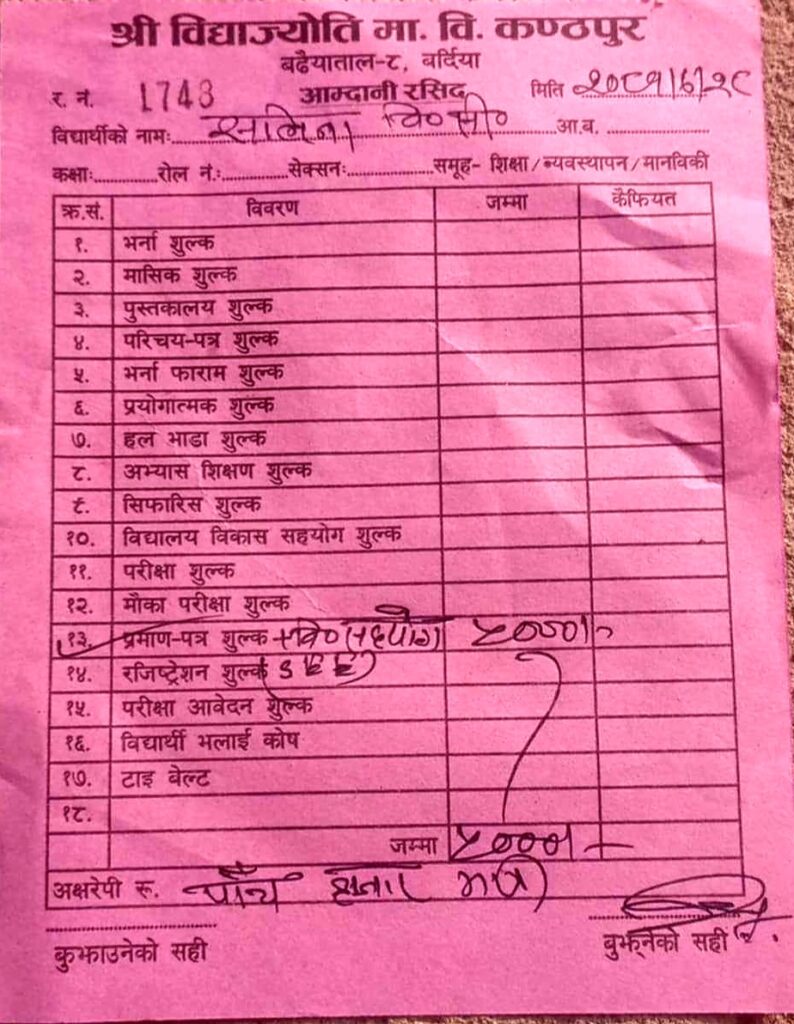 श्री विद्याज्योति मा. वि. कण्ठपुर
बढैयाताल-८, बर्दिया
र. नं. 1743 आम्दानी रसिद मिति २०८१/६/२८
विद्यार्थीको नामः सलिना वि॰सी॰ आ.ब.
कक्षाः रोल नं.: सेक्सनः समूह- शिक्षा/व्यवस्थापन/मानविकी
क्र.सं. विवरण जम्मा कैफियत
१. भर्ना शुल्क
२. मासिक शुल्क
३. पुस्तकालय शुल्क
४. परिचय-पत्र शुल्क
५. भर्ना फाराम शुल्क
६. प्रयोगात्मक शुल्क
७. हल भाडा शुल्क
८. अभ्यास शिक्षण शुल्क
९. सिफारिस शुल्क
१०. विद्यालय विकास सहयोग शुल्क
११. परीक्षा शुल्क
१२. मौका परीक्षा शुल्क
१३. प्रमाण-पत्र शुल्क +वि॰ सहयोग ५०००।-
१४. रजिष्ट्रेशन शुल्क (SEE)
१५. परीक्षा आवेदन शुल्क
१६. विद्यार्थी भलाई कोष
१७. टाइ बेल्ट
१८.
जम्मा ५०००।-
अक्षरेपी रू. पाँच हजार मात्र
बुझाउनेको सही बुझ्नेको सही